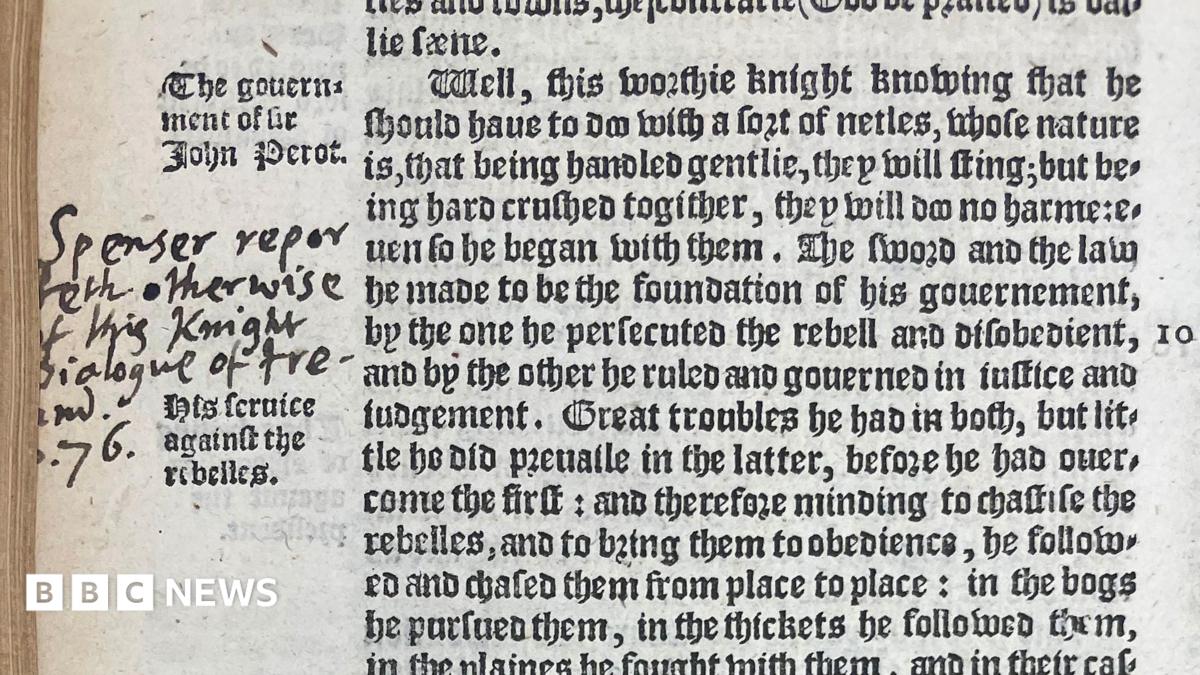 ties and townes, the contrarie (God be praised) is dai-
lie sæne.
The gouern-
ment of sir
John Perot.
Spenser repor
teth otherwise
of this Knight
Dialogue of Ire-
land.
p.76.
His seruice
against the
rebelles.
Well, this worthie knight knowing that he
should haue to doo with a sort of netles, whose nature
is, that being handled gentlie, they will sting; but be-
ing hard crushed togither, they will doo no harme: e-
uen so he began with them. The sword and the law
he made to be the foundation of his gouernement,
by the one he persecuted the rebell and disobedient, 10
and by the other he ruled and gouerned in iustice and
iudgement. Great troubles he had in both, but lit-
tle he did preuaile in the latter, before he had ouer-
come the first: and therefore minding to chastise the
rebelles, and to bring them to obedience, he follow-
ed and chased them from place to place: in the bogs
he pursued them, in the thickets he followed them,
in the plaines he fought with them, and in their cas-
BBC NEWS